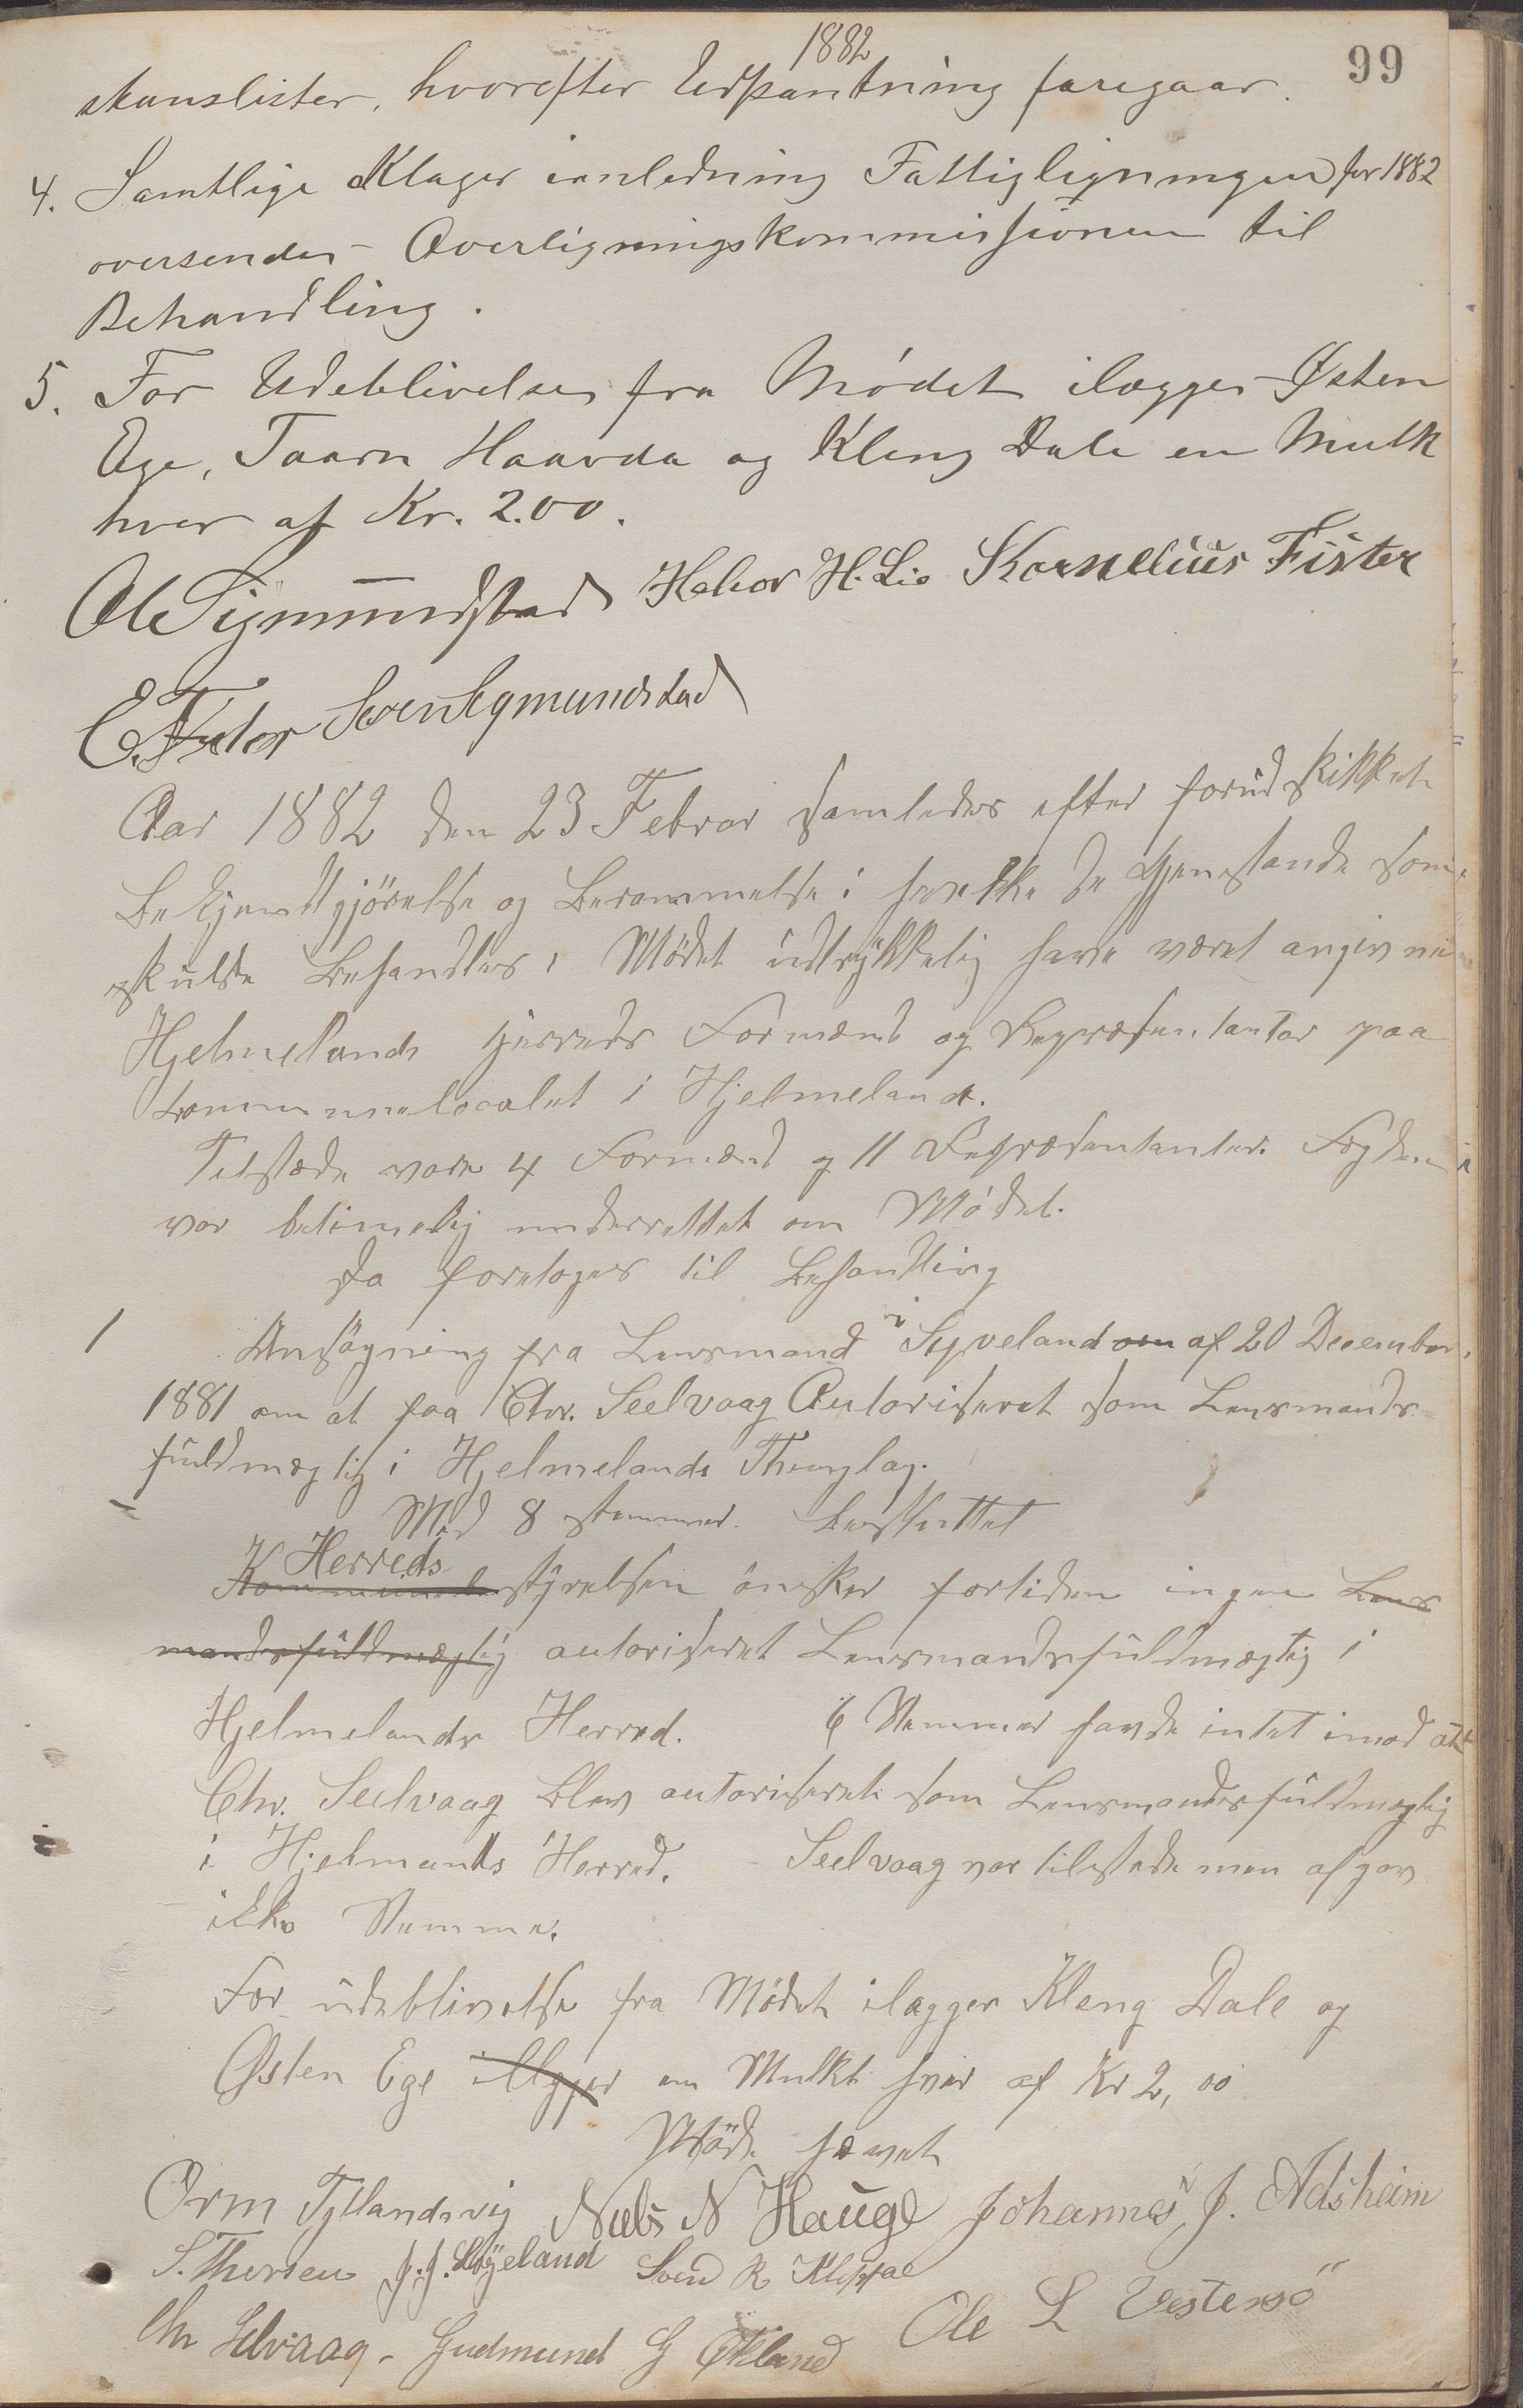 1882
99
skanslister, hvorefter Udpantning foregaar.
4. Samtlige Klager ianledning Fattigligningen for 1882
oversendes Overligningskommissionen til
Behandling.
5. For Udeblivelse fra Mødet ilægges Østen
Ege, Taarn Haavda og Kleng Dale en Mulk
hver af Kr. 2.00.
Ole Sigmundstad Halvor H. Lie Kornelius Fister
E. Sven Sigmundstad
Aar 1882 den 23 Febror samledes efter forudskikket
Bekjendtgjörelse og Berammelse i hvilke de Gjenstande som
skulde Behandles i Mødet udtrykkelig have været angivne
Hjelmelands Herreds Formænd og Repræsentanter paa
Kommunelocalet i Hjelmeland.
Tilstæde vare 4 Formænd og 11 Repræsentanter. Fogden
var betimelig underrettet om Mødet.
Da foretoges til Behandling
1 Ansögning fra Lensmand i Syveland om af 20 December
1881 om at faa Chr. Seelvaag Autoriseret som Lensmands
fuldmægtig i Hjelmelands Thinglag.
Med 8 stemmer Besluttet
Herreds
Kommunebestÿrelsen önsker fortiden ingen Lens
mandsfuldmægtig autoriseret Lensmandsfuldmægtig i
Hjelmelands Herred. 6 Stemmer havde intet imod at
Chr. Seelvaag blev autoriseret som Lensmandsfuldmægtig
i Hjelmands Herred. Seelvaag var tilstede men afgav
ikke Stemme.
For udeblivelse fra Mødet ilægges Kleng Dale og
Østen Ege illgger en Mulkt hver af Kr 2,00
Möde hævet
Orm Tyllandsvig Niels N Hauge Johannes J. Adsheim
S. Thorsen J. J. Svend R Kleppe
Chr Selvaag. Gudmund G Økland Ole L Vestersö